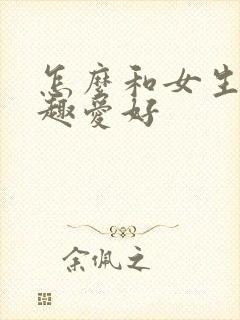 怎麼和女生
趣愛好
余佩之